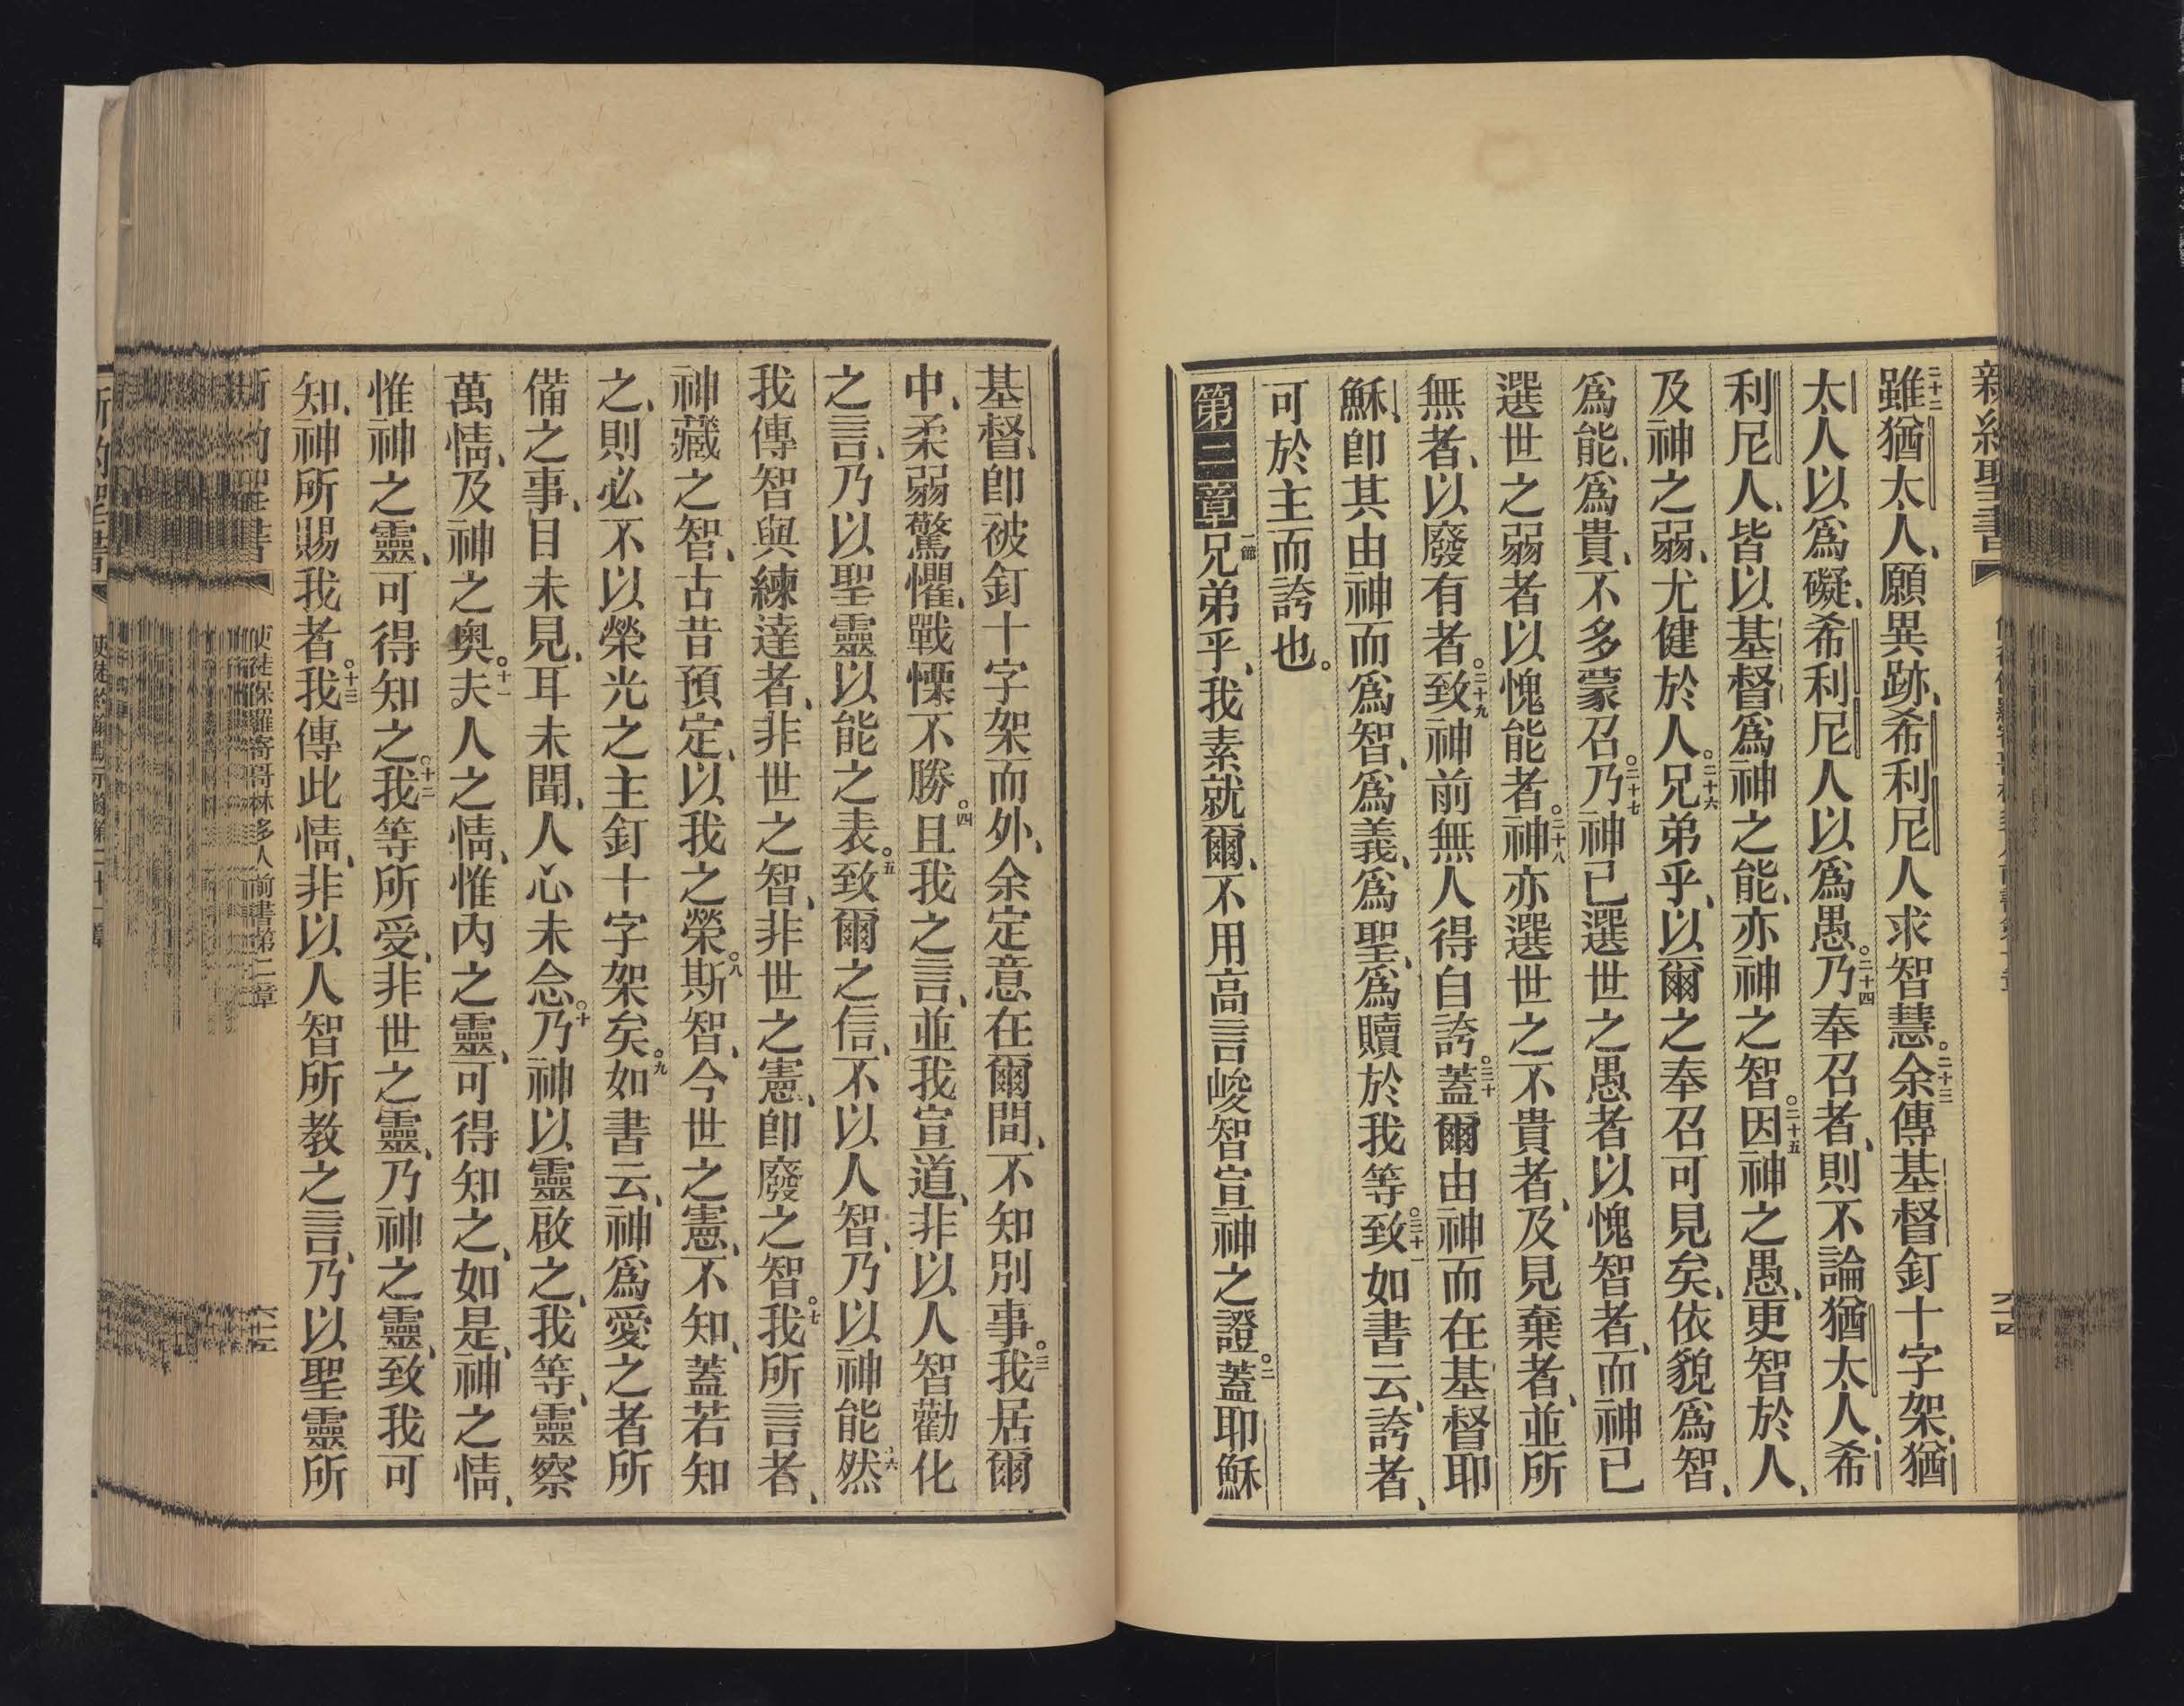 新約聖書
二十二雖猶太人、願異跡、希利尼人求智慧。二十三余傳基督釘十字架、猶
太人以爲礙、希利尼人以爲愚。二十四乃奉召者、則不論猶太人、希
利尼人、皆以基督爲神之能、亦神之智。二十五因神之愚、更智於人、
及神之弱、尤健於人。二十六兄弟乎、以爾之奉召可見矣、依貌爲智、
爲能、爲貴、不多蒙召。二十七乃神已選世之愚者以愧智者、而神已
選世之弱者以愧能者。二十八神亦選世之不貴者、及見棄者、並所
無者、以廢有者。二十九致神前無人得自誇。三十蓋爾由神而在基督耶
穌、卽其由神而爲智、爲義、爲聖、爲贖於我等。三十一致如書云、誇者、
可於主而誇也。
第二章一節兄弟乎、我素就爾、不用高言峻智宣神之證。二蓋耶穌
基督、卽被釘十字架而外、余定意在爾間、不知別事。三我居爾
中、柔弱驚懼、戰慄不勝。四且我之言、並我宣道、非以人智勸化
之言、乃以聖靈以能之表。五致爾之信、不以人智、乃以神能。六然
我傳智與練達者、非世之智、非世之憲、卽廢之智。七我所言者、
神藏之智、古昔預定、以我之榮。八斯智、今世之憲、不知、蓋若知
之、則必不以榮光之主釘十字架矣。九如書云、神爲愛之者所
備之事、目未見、耳未聞、人心未念。十乃神以靈啟之、我等、靈察
萬情、及神之奧。十一夫人之情、惟內之靈、可得知之、如是、神之情、
惟神之靈、可得知之。十二我等所受、非世之靈、乃神之靈、致我可
知、神所賜我者。十三我傳此情、非以人智所教之言、乃以聖靈所
新約聖書 使徒保羅寄哥林多人前書第二章 六十五